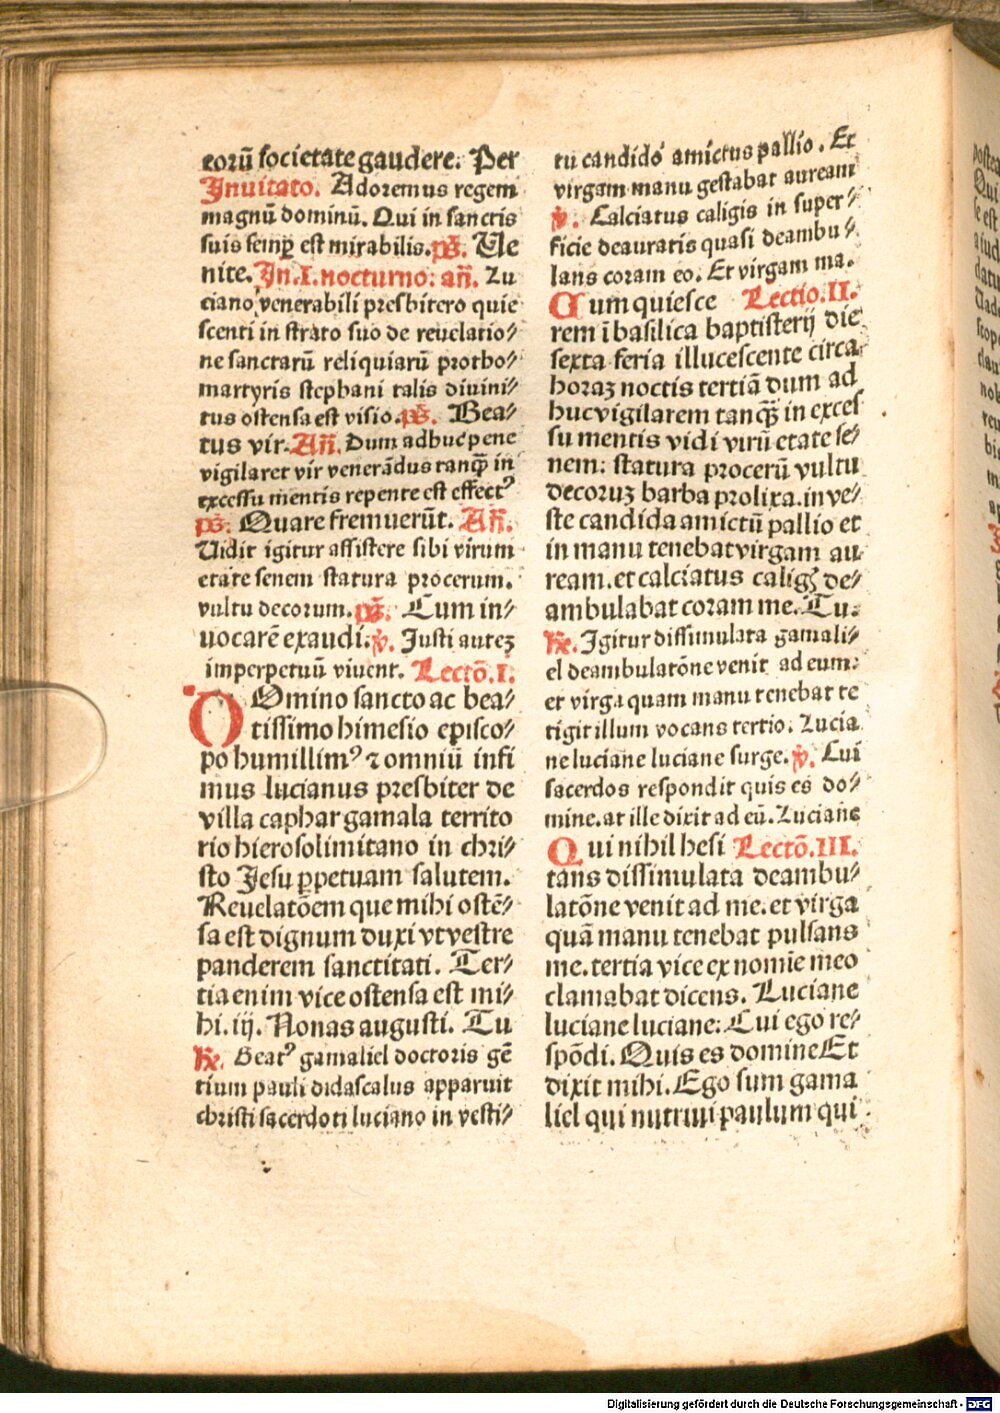 eorū societate gaudere. Per
Inuitato. Adoremus regem
magnū dominū. Qui in sanctis
suis semꝑ est mirabilis. ps̄. Ue
nite. In. I. nocturno: an̄. Lu
ciano venerabili presbitero quie
scenti in strato suo de reuelatio⸗
ne sanctarū reliquiarū protho⸗
martyris stephani talis diuini⸗
tus ostensa est visio. ps̄. Bea⸗
tus vir. An̄. Dum adhuc pene
vigilaret vir venerādus tanqꝫ in
excessu mentis repente est effectꝰ
ps̄. Quare fremuerūt. An̄.
Uidit igitur assistere sibi virum
etate senem statura procerum.
vultu decorum. ps̄. Cum in⸗
uocarē exaudi. ℣. Justi auteꝫ
imperpetuū viuent. Lectō. I.
Domino sancto ac bea⸗
tissimo himesio episco⸗
po humillimꝰ ⁊ omniū infi
mus lucianus presbiter de
villa caphargamala territo
rio hierosolimitano in chri⸗
sto Jesu ꝑpetuam salutem.
Reuelatōem que mihi ostē⸗
sa est dignum duxi vt vestre
panderem sanctitati. Ter⸗
tia enim vice ostensa est mi⸗
hi. iij. Nonas augusti. Tu
℟. Beatꝰ gamaliel doctoris gē
tium pauli didascalus apparuit
christi sacerdoti luciano in vesti⸗
tu candido amictus pallio. Et
virgam manu gestabat auream
℣. Calciatus caligis in super⸗
ficie deauratis quasi deambu⸗
lans coram eo. Et virgam ma.
Cum quiesce Lectio. II.
rem ī basilica baptisterij die
sexta feria illucescente circa
horaꝫ noctis tertiā dum ad
huc vigilarem tanqꝫ in exces
su mentis vidi virū etate se⸗
nem: statura procerū vultu
decoruꝫ barba prolixa. in ve⸗
ste candida amictū pallio et
in manu tenebat virgam au
ream. et calciatus caligꝭ de⸗
ambulabat coram me. Tu.
℟. Igitur dissimulata gamali⸗
el deambulatōne venit ad eum:
et virga quam manu tenebat te
tigit illum vocans tertio. Lucia
ne luciane luciane surge. ℣. Cui
sacerdos respondit quis es do⸗
mine. at ille dixit ad eū. Luciane
Qui nihil hesi Lectō. III.
tans dissimulata deambu⸗
latōne venit ad me. et virga
quā manu tenebat pulsans
me. tertia vice ex nomīe meo
clamabat dicens. Luciane
luciane luciane: Cui ego re⸗
spōdi. Quis es domine Et
dixit mihi. Ego sum gama
liel qui nutriui paulum qui
Digitalisierung gefördert durch die Deutsche Forschungsgemeinschaft - DFG